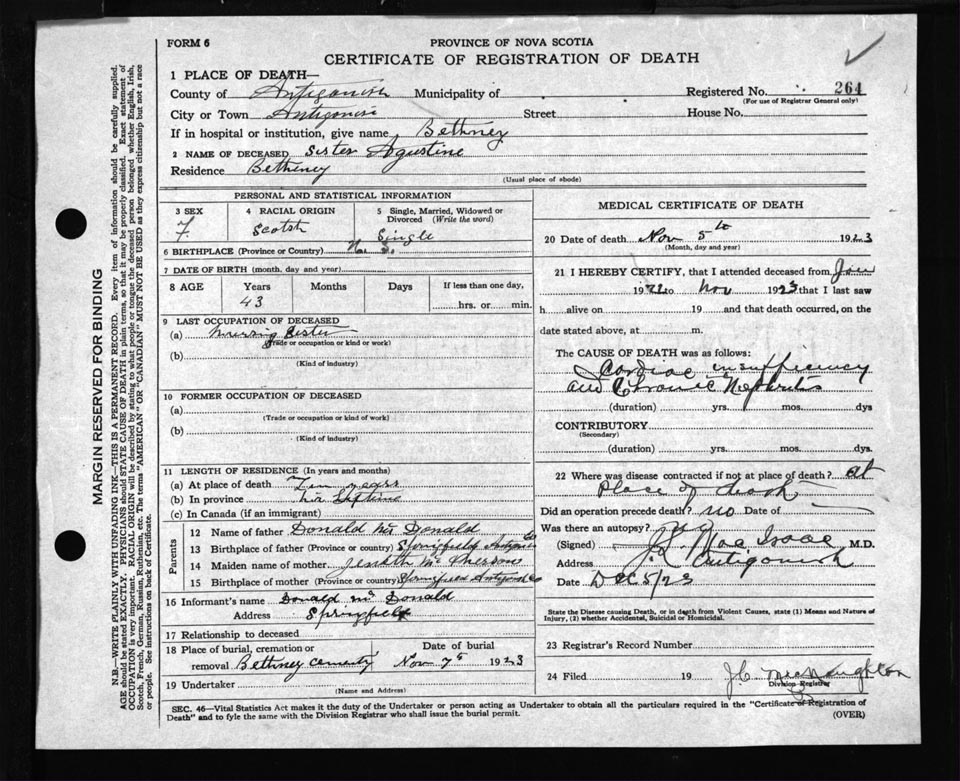 FORM 6
PROVINCE OF NOVA SCOTIA
CERTIFICATE OF REGISTRATION OF DEATH
1 PLACE OF DEATH—
County of Antigonish Municipality of Registered No. 264
(For use of Registrar General only)
City or Town Antigonish Street House No.
If in hospital or institution, give name Bethney
2 NAME OF DECEASED Sister Agustine
Residence Betheney
(Usual place of abode)
PERSONAL AND STATISTICAL INFORMATION
3 SEX F.
4 RACIAL ORIGIN Scotsh
5 Single, Married, Widowed or Divorced (Write the word) Single
6 BIRTHPLACE (Province or Country) N. S.
7 DATE OF BIRTH (month, day and year)
8 AGE Years Months Days If less than one day,
43 hrs. or min.
9 LAST OCCUPATION OF DECEASED
(a) Nursing Sister
(Trade or occupation or kind or work)
(b)
(Kind of industry)
10 FORMER OCCUPATION OF DECEASED
(a)
(Trade or occupation or kind of work)
(b)
(Kind of industry)
11 LENGTH OF RESIDENCE (In years and months)
(a) At place of death years
(b) In province Liftime
(c) In Canada (if an immigrant)
Parents
12 Name of father Donald Mc Donald
13 Birthplace of father (Province or country) Springfield Antigonish Co
14 Maiden name of mother Mc Pherson
15 Birthplace of mother (Province or Country) Springfield Antigonish Co
16 Informant's name Donald Mc Donald
Address Springfield
17 Relationship to deceased
18 Place of burial, cremation or Date of burial
removal Bethney Cementy Nov 7th 1923
19 Undertaker
(Name and Address)
MEDICAL CERTIFICATE OF DEATH
20 Date of death Nov 5th 1923
(Month, day and year)
21 I HEREBY CERTIFY, that I attended deceased from Jan
1922 to Nov 1923 that I last saw
h alive on 19 and that death occurred, on the
date stated above, at m.
The CAUSE OF DEATH was as follows:
Cardiac insufficiency
and Chronic Nephritis
(duration) yrs. mos. dys
CONTRIBUTORY
(Secondary)
(duration) yrs. mos. dys
22 Where was disease contracted if not at place of death? at
Place of death
Did an operation precede death? no Date of —
Was there an autopsy? no
(Signed) J. L. MacIsaac M.D.
Address Antigonish
Date Dec 5/23
State the Disease causing Death, or in death from Violent Causes, state (1) Means and Nature of
Injury, (2) whether Accidental, Suicidal or Homicidal.
23 Registrar's Record Number
24 Filed 19
Division Registrar
SEC. 46—Vital Statistics Act makes it the duty of the Undertaker or person acting as Undertaker to obtain all the particulars required in the "Certificate of Registration of
Death" and to fyle the same with the Division Registrar who shall issue the burial permit. (OVER)
MARGIN RESERVED FOR BINDING
N.B.—WRITE PLAINLY WITH UNFADING INK—THIS IS A PERMANENT RECORD. Every item of information should be carefully supplied.
AGE should be stated EXACTLY. PHYSICIANS should STATE CAUSE OF DEATH in plain terms, so that it may be properly classified. Exact statement of
OCCUPATION is very important. RACIAL ORIGIN will be described by stating to what people or tongue the deceased person belonged whether English, Irish,
Scotch, French, German, Russian, Ruthenian, etc. The terms "AMERICAN" OR "CANADIAN" MUST NOT BE USED as they express citizenship but not a race
or people. See instructions on back of Certificate.